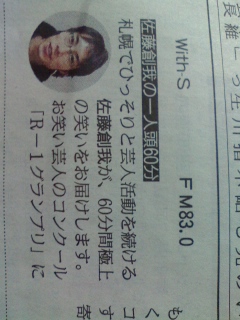 With-S　FM83.0
佐藤創我の一人頭60分
札幌でひっそりと芸人活動を続ける
佐藤創我が、60分間極上
の笑いをお届けします。
お笑い芸人のコンクール
「R－1グランプリ」に